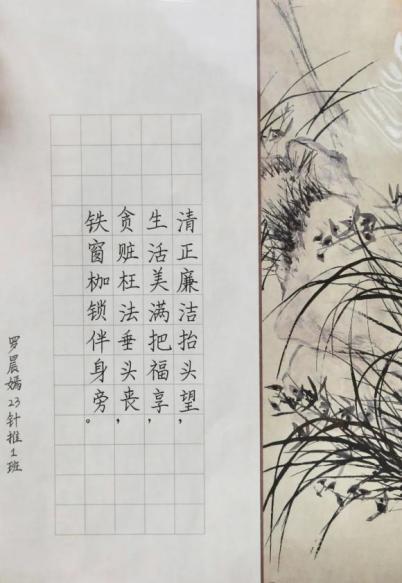 清正廉洁抬头望，
生活美满把福享，
贪赃枉法垂头丧，
铁窗枷锁伴身旁。
罗晨嫣23针推1班